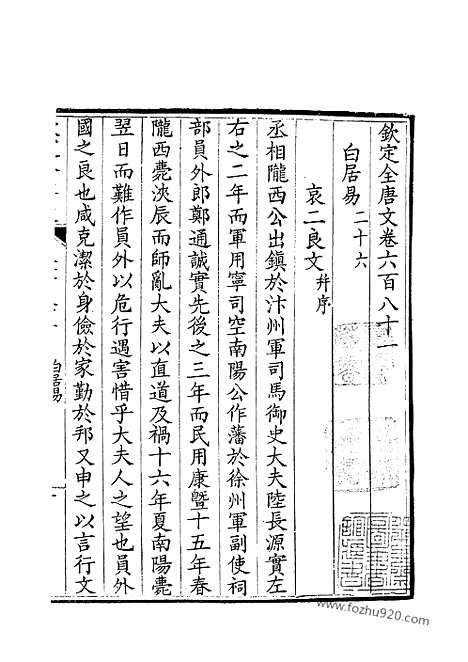 欽定全唐文卷六百八十一
白居易二十六
哀二良文并序
丞相隴西公出鎮於汴州軍司馬御史大夫陸長源實左
右之二年而軍用寧司空南陽公作藩於徐州軍副使祠
部員外郎鄭通誠實先後之三年而民用康暨十五年春
隴西薨浹辰而師亂大夫以直道及禍十六年夏南陽薨
翌日而難作員外以危行遇害惜乎大夫人之望也員外
國之良也咸克潔於身儉於家勤於邦又申之以言行文
白居易
一
www.fozhu920.com